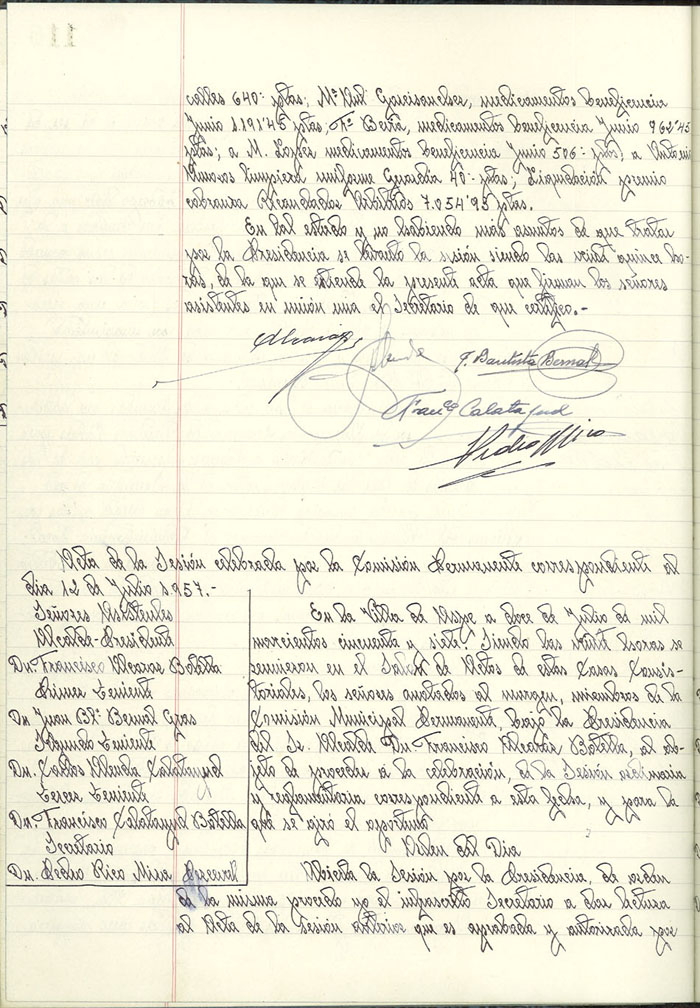 calles 640- ptas; Mª medicamentos beneficencia
Junio 1.191'45 ptas; Fº Beviá, medicamentos beneficencia Junio 962'45
ptas; a M. López medicamentos beneficencia Junio 506- ptas; a Antonio
limpieza uniforme Guardia 40- ptas; Liquidación premio
cobranza Recaudador Arbitrios 7.054'93 ptas.
En tal estado y no habiendo más asuntos de que tratar
por la Presidencia se levantó la sesión siendo las veinte quince ho-
ras, de la que se extiende la presente acta que firman los señores
asistentes en unión mia el Secretario de que certifico.-
F. Bautista Bernal
Franco Calatayud
Pedro Rico
Acta de la Sesión celebrada por la Comisión Permanente correspondiente al
dia 12 de Julio 1.957.-
Señores Asistentes
Alcalde-Presidente
Dn. Francisco Alcaraz Botella
Primer Teniente
Dn Juan Btª Bernal Gras
Segundo Teniente
Dn. Carlos Calatayud
Tercer Teniente
Dn. Francisco Calatayud Botella
Secretario
Dn. Pedro Rico Mira
En la Villa de Aspe a doce de Julio de mil
novecientos cincuenta y siete. Siendo las veinte horas se
reunieron en el Salón de Actos de estas Casas Consis-
toriales, los señores anotados al margen, miembros de la
Comisión Municipal Permanente, bajo la Presidencia
del Sr. Alcalde Dn. Francisco Alcaraz Botella, al ob-
jeto de proceder a la celebración, de la Sesión ordinaria
y reglamentaria correspondiente a esta fecha, y para la
que se giró el oportuno
Orden del Dia
Abierta la Sesión por la Presidencia, de orden
de la misma procedo yo el infrascrito Secretario a dar lectura
al Acta de la sesión anterior que es aprobada y autorizada por